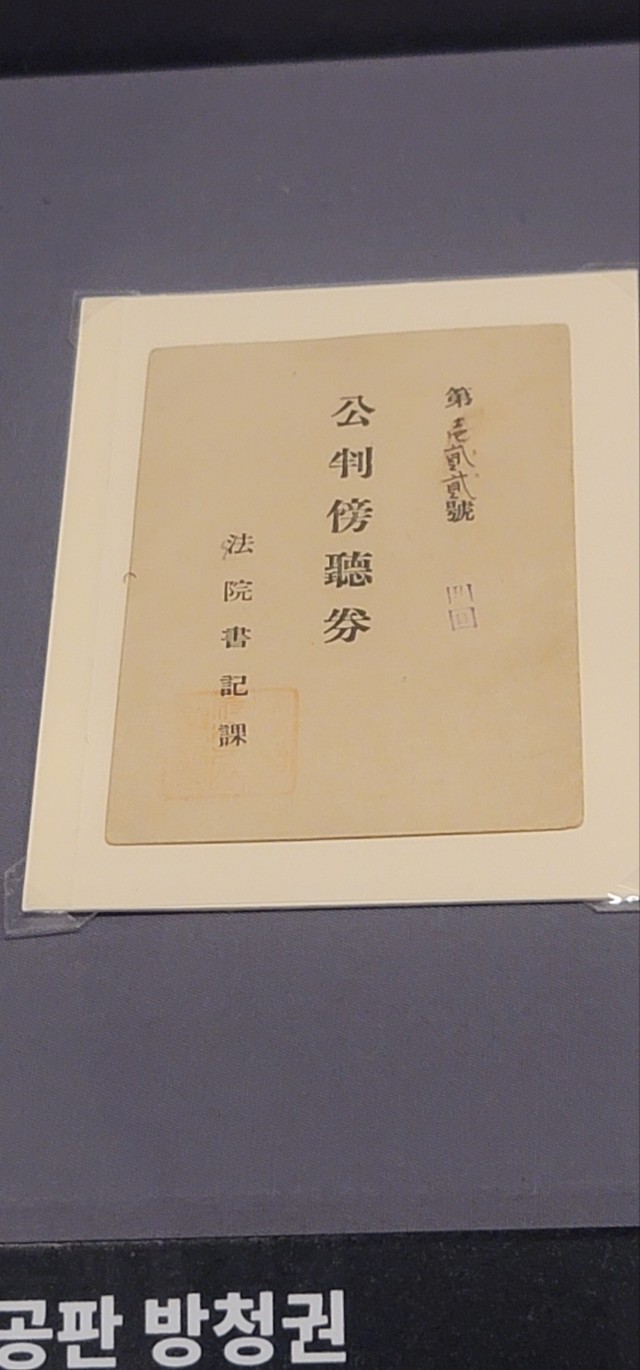 第壹貳貳號
公判傍聽券
法院書記課
공판 방청권